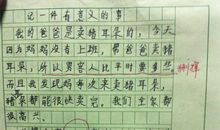 记一件有意义的事
我的爸爸是卖猪耳朵的,今天
因为妈妈没有上班,帮爸爸卖猪
耳朵,所以男客人比平时要多些
而且我发现妈每次来卖猪耳朵,
猪耳朵都能很快卖完,我们全家都
很高兴。